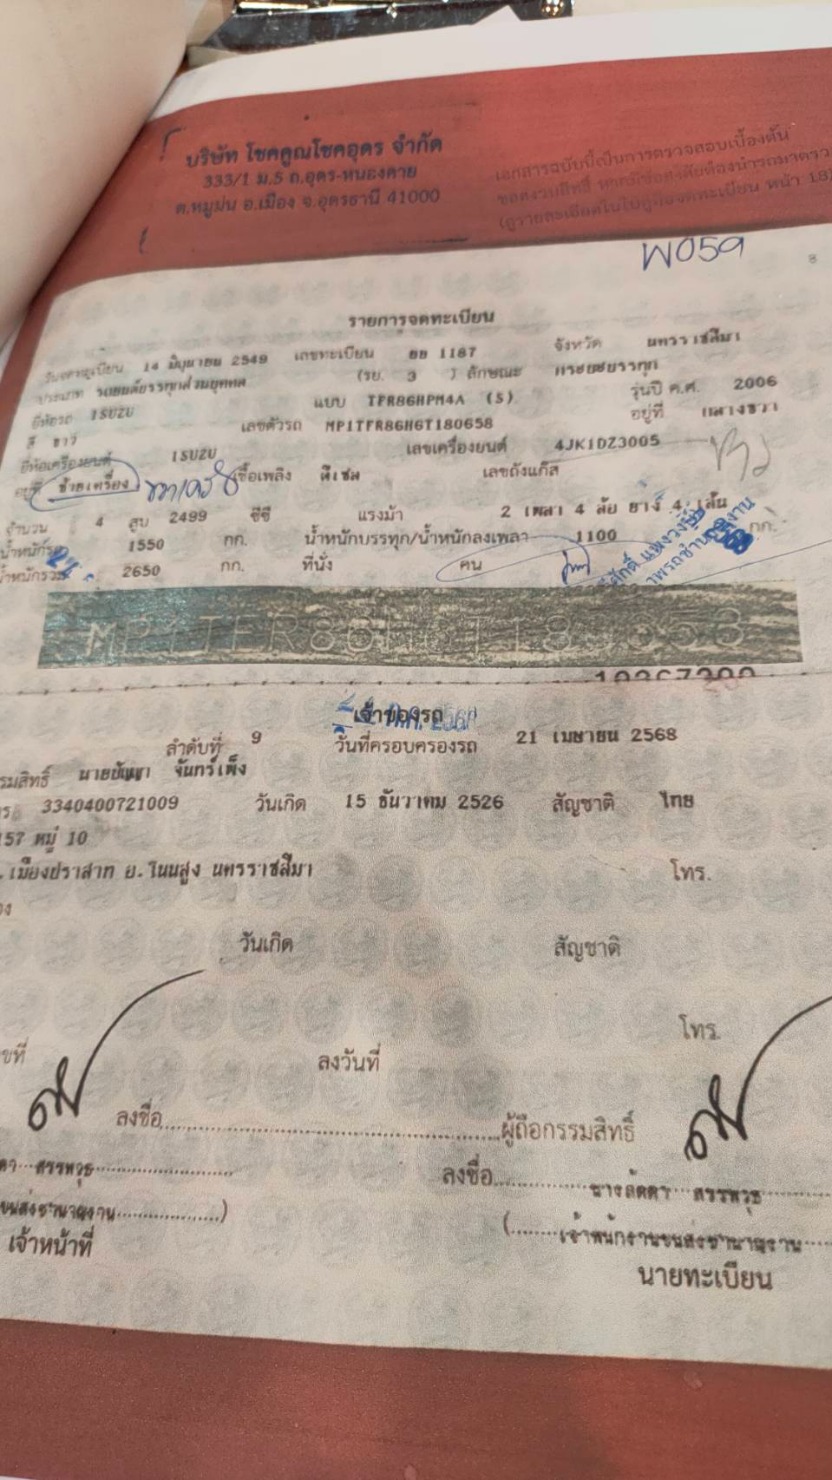 บริษัท โชคคูณโชคอุดร จำกัด
333/1 ม.5 ถ.อุดร-หนองคาย
ต.หมูม่น อ.เมือง จ.อุดรธานี 41000
เอกสารฉบับนี้เป็นการตรวจสอบเบื้องต้น
W059
8
รายการจดทะเบียน
วันจดทะเบียน 14 มิถุนายน 2549 เลขทะเบียน 1187 จังหวัด นครราชสีมา
ประเภท รถยนต์บรรทุกส่วนบุคคล (รย. 3 ) ลักษณะ กระบะบรรทุก
ยี่ห้อรถ ISUZU แบบ TFR86HPM4A (S) รุ่นปี ค.ศ. 2006
สี ขาว เลขตัวรถ MP1TFR86H6T180658 อยู่ที่ กลางขวา
ยี่ห้อเครื่องยนต์ ISUZU เลขเครื่องยนต์ 4JK1DZ3005
อยู่ที่ ซ้ายเครื่อง เชื้อเพลิง ดีเซล เลขถังแก๊ส
จำนวน 4 สูบ 2499 ซีซี แรงม้า 2 เพลา 4 ล้อ ยาง 4 เส้น
น้ำหนักรถ 1550 กก. น้ำหนักบรรทุก/น้ำหนักลงเพลา 1100 กก.
น้ำหนักรวม 2650 กก. ที่นั่ง คน
MP1TFR86H6T180658
เจ้าของรถ
ลำดับที่ 9 วันที่ครอบครองรถ 21 เมษายน 2568
นายปัญญา จันทร์เพ็ง
3340400721009 วันเกิด 15 ธันวาคม 2526 สัญชาติ ไทย
157 หมู่ 10
เมืองปราสาท อ.โนนสูง นครราชสีมา โทร.
วันเกิด สัญชาติ
โทร.
ลงวันที่
ลงชื่อ ผู้ถือกรรมสิทธิ์
ลงชื่อ นางลัดดา สรรพวุธ
สรรพวุธ
( เจ้าพนักงานขนส่งชำนาญงาน
ขนส่งชำนาญงาน )
เจ้าหน้าที่
นายทะเบียน